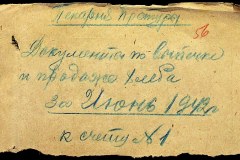 Пекарня Праторы
56
Документы по выпечке
и продаже хлеба
за Июнь 1942 г
к счету № 1